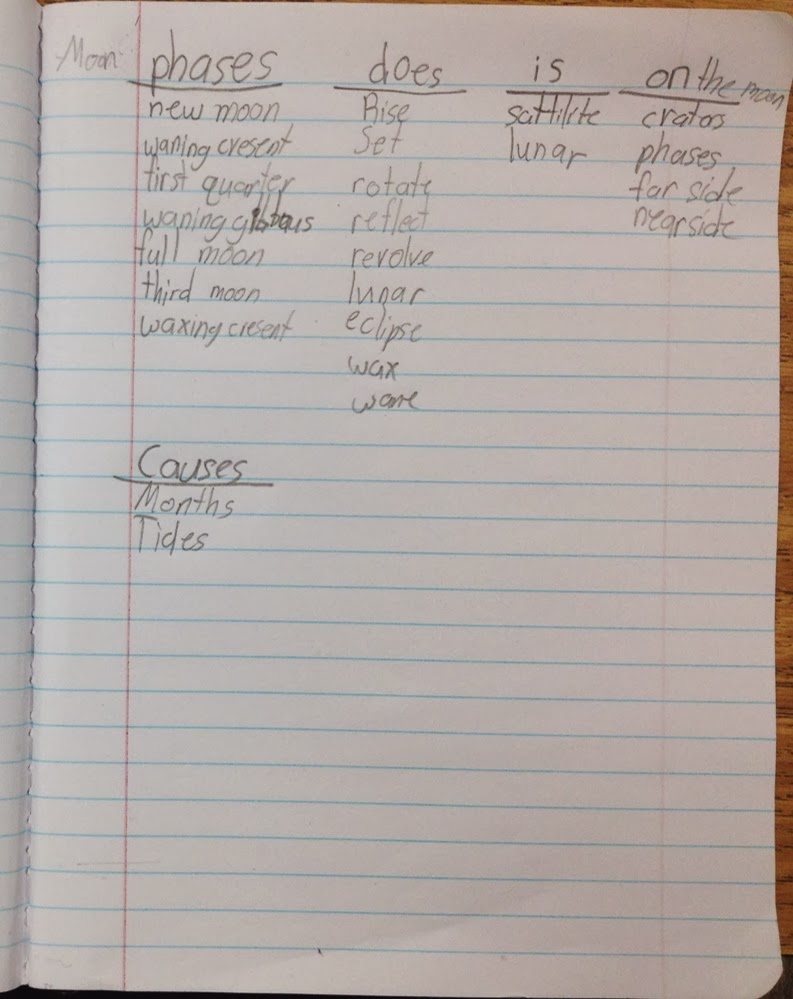 Moon phases does is on the moon
new moon Rise sattilite crators
waning cresent Set lunar phases
first quarter rotate far side
waning gibbous reflect nearside
full moon revolve
third moon lunar
waxing cresent eclipse
wax
wane
Causes
Months
Tides